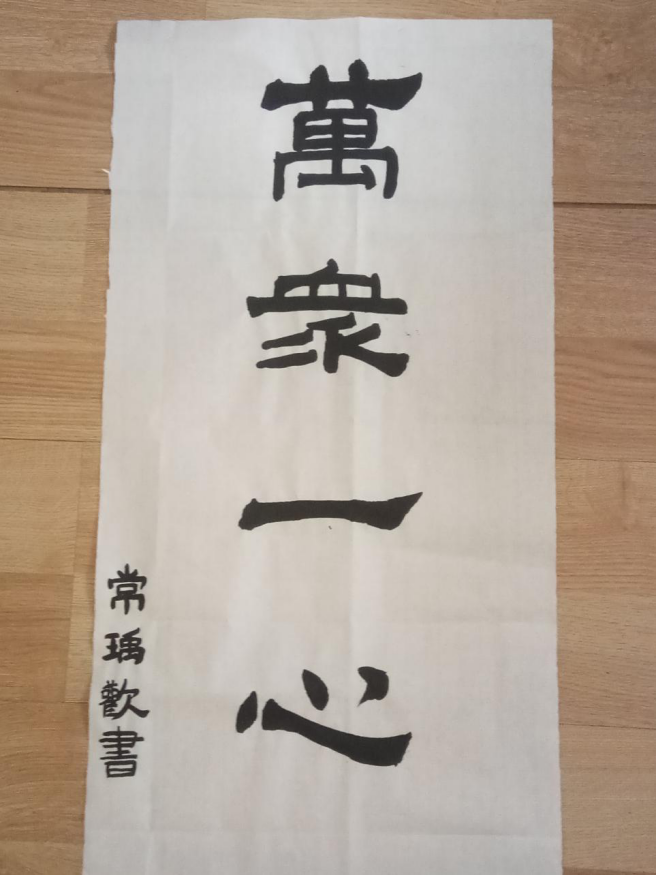 萬眾一心
常瑀歡書